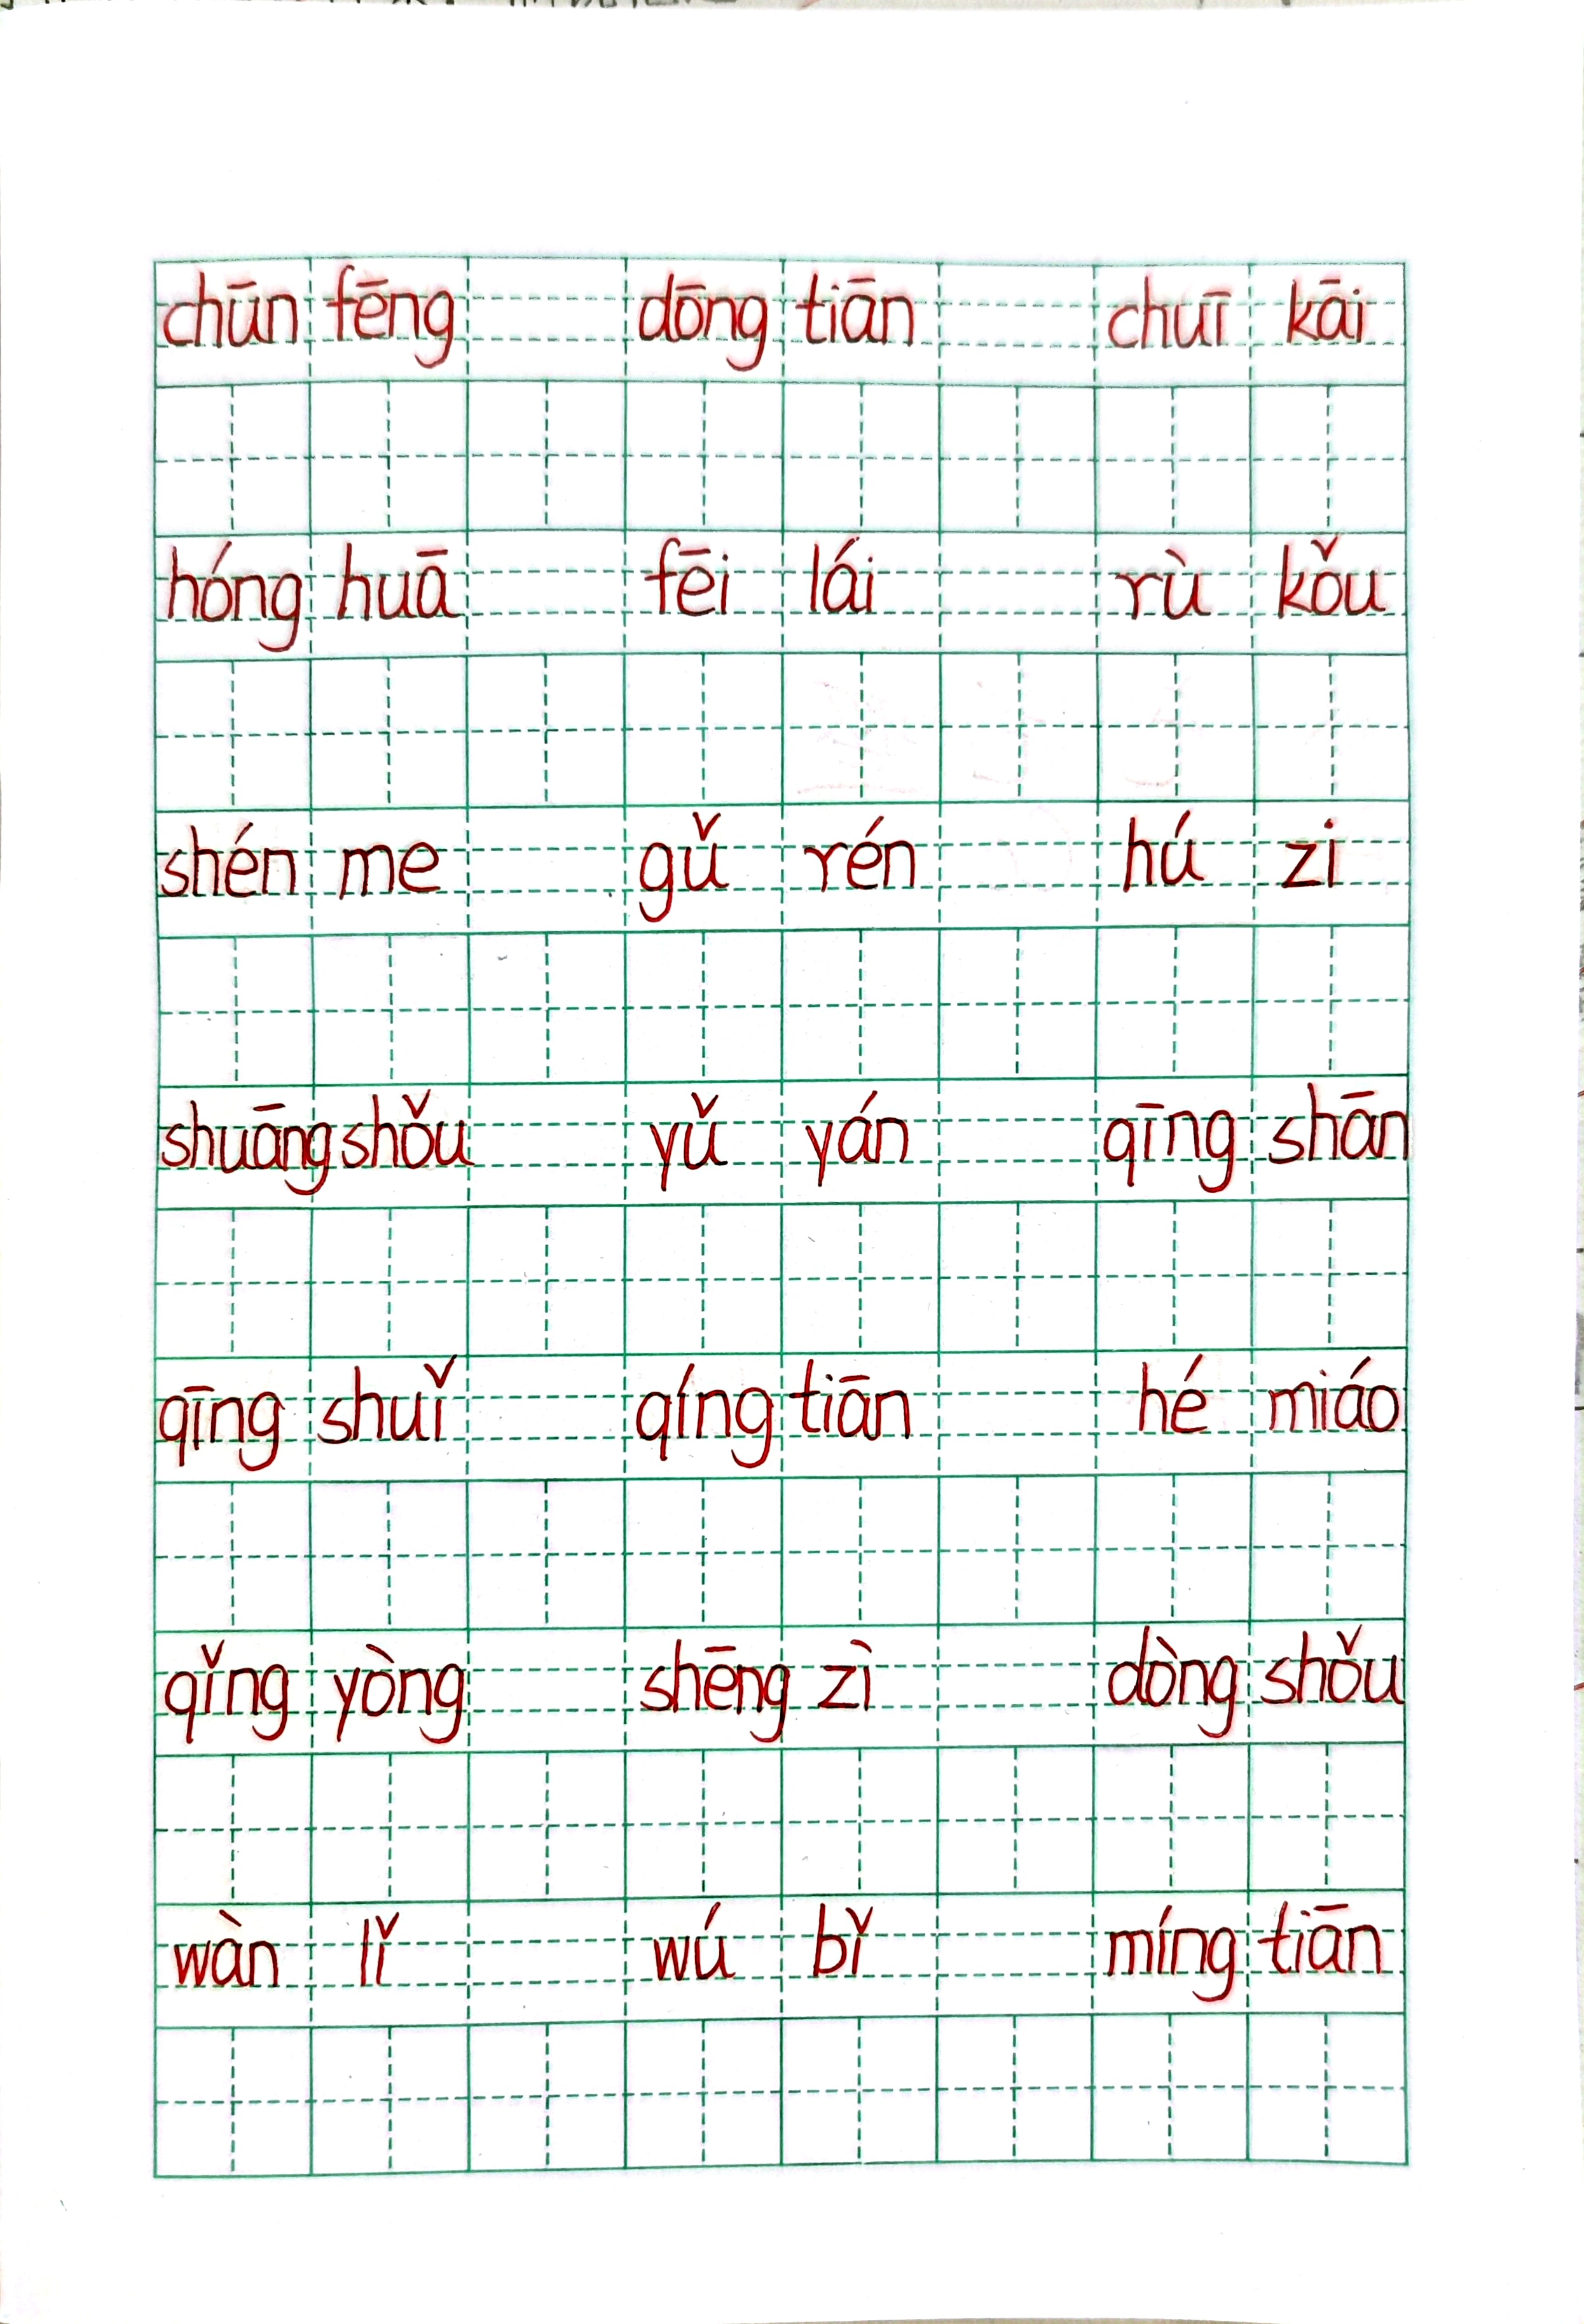 chūn fēng dōng tiān chuī kāi
hóng huā fēi lái rù kǒu
shén me gǔ rén hú zi
shuāng shǒu yǔ yán qīng shān
qīng shuǐ qíng tiān hé miáo
qǐng yòng shēng zì dòng shǒu
wàn lǐ wú bǐ míng tiān